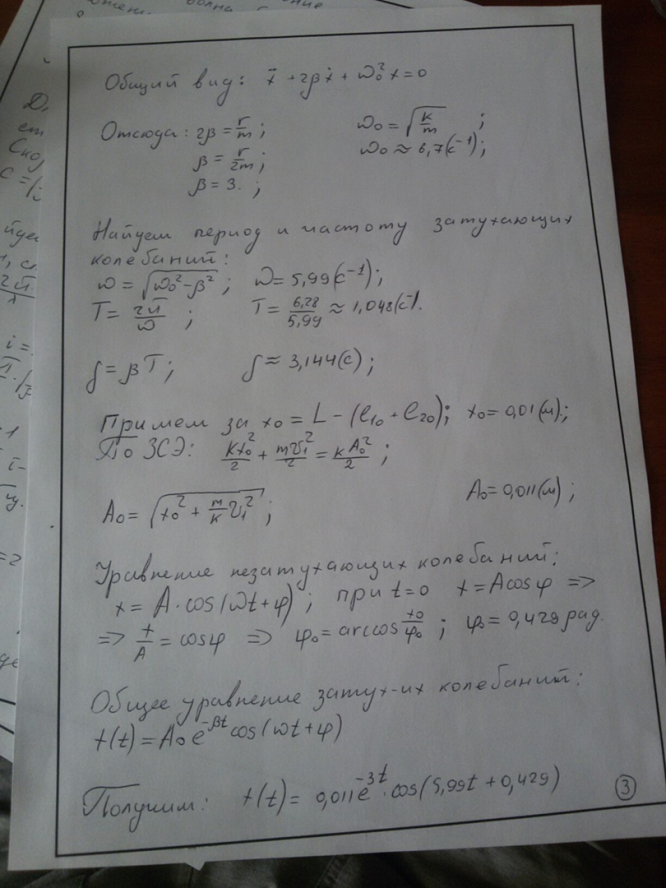 Общий вид: ẍ + 2βẋ + ω₀²x = 0
Отсюда: 2β = r/m; ω₀ = √(k/m) ;
β = r/2m; ω₀ ≈ 6,7(с⁻¹);
β = 3. ;
Найдем период и частоту затухающих
колебаний:
ω = √(ω₀² - β²) ; ω = 5,99(с⁻¹);
T = 2π/ω ; T = 6,28/5,99 ≈ 1,048(с⁻¹).
δ = βT; δ ≈ 3,144(с) ;
Примем за x₀ = L - (l₁₀ + l₂₀); x₀ = 0,01(м);
По ЗСЭ: kx₀²/2 + mv₁²/2 = kA₀²/2 ;
A₀ = √(x₀² + m/k v₁²) ; A₀ = 0,011(м) ;
Уравнение незатухающих колебаний:
x = A·cos(ωt + φ) ; при t = 0 x = Acosφ =>
=> x/A = cosφ => φ₀ = arccos x₀/φ₀ ; φ₀ = 0,429 рад.
Общее уравнение затух-их колебаний:
x(t) = A₀ e^(-βt) cos(ωt + φ)
Получим: x(t) = 0,011e^(-3t)·cos(5,99t + 0,429)
3